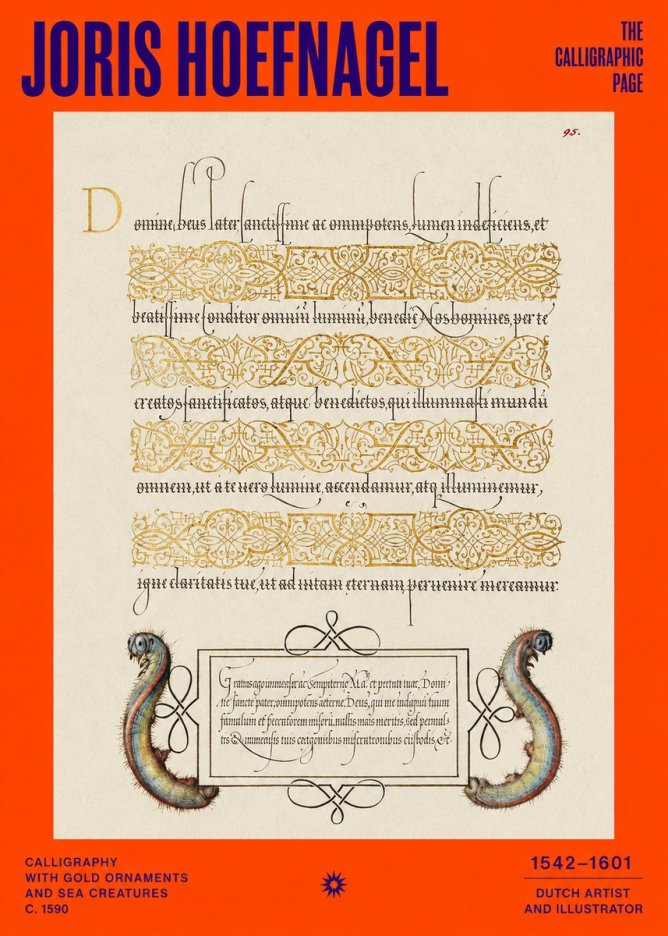 JORIS HOEFNAGEL
THE
CALLIGRAPHIC
PAGE
95.
Domine Deus Pater sanctissime ac omnipotens, lumen indeficiens, et
beatissime conditor omniũ luminũ, benedic Nos homines, per te
creatos sanctificatos, atque benedictos, qui illuminasti mundũ
omnem, ut a te vero lumine, ascendamur, atq illuminemur,
igne claritatis tuę, ut ad vitam eternam, pervenire mereamur.
Gratias ago immensæ ac sempiternæ tuæ, Domi
ne sancte pater, omnipotens aeterne Deus, qui me indignũ tuum
famulum et peccatorem nullis meis meritis, sed
tuis
CALLIGRAPHY
WITH GOLD ORNAMENTS
AND SEA CREATURES
C. 1590
1542–1601
DUTCH ARTIST
AND ILLUSTRATOR